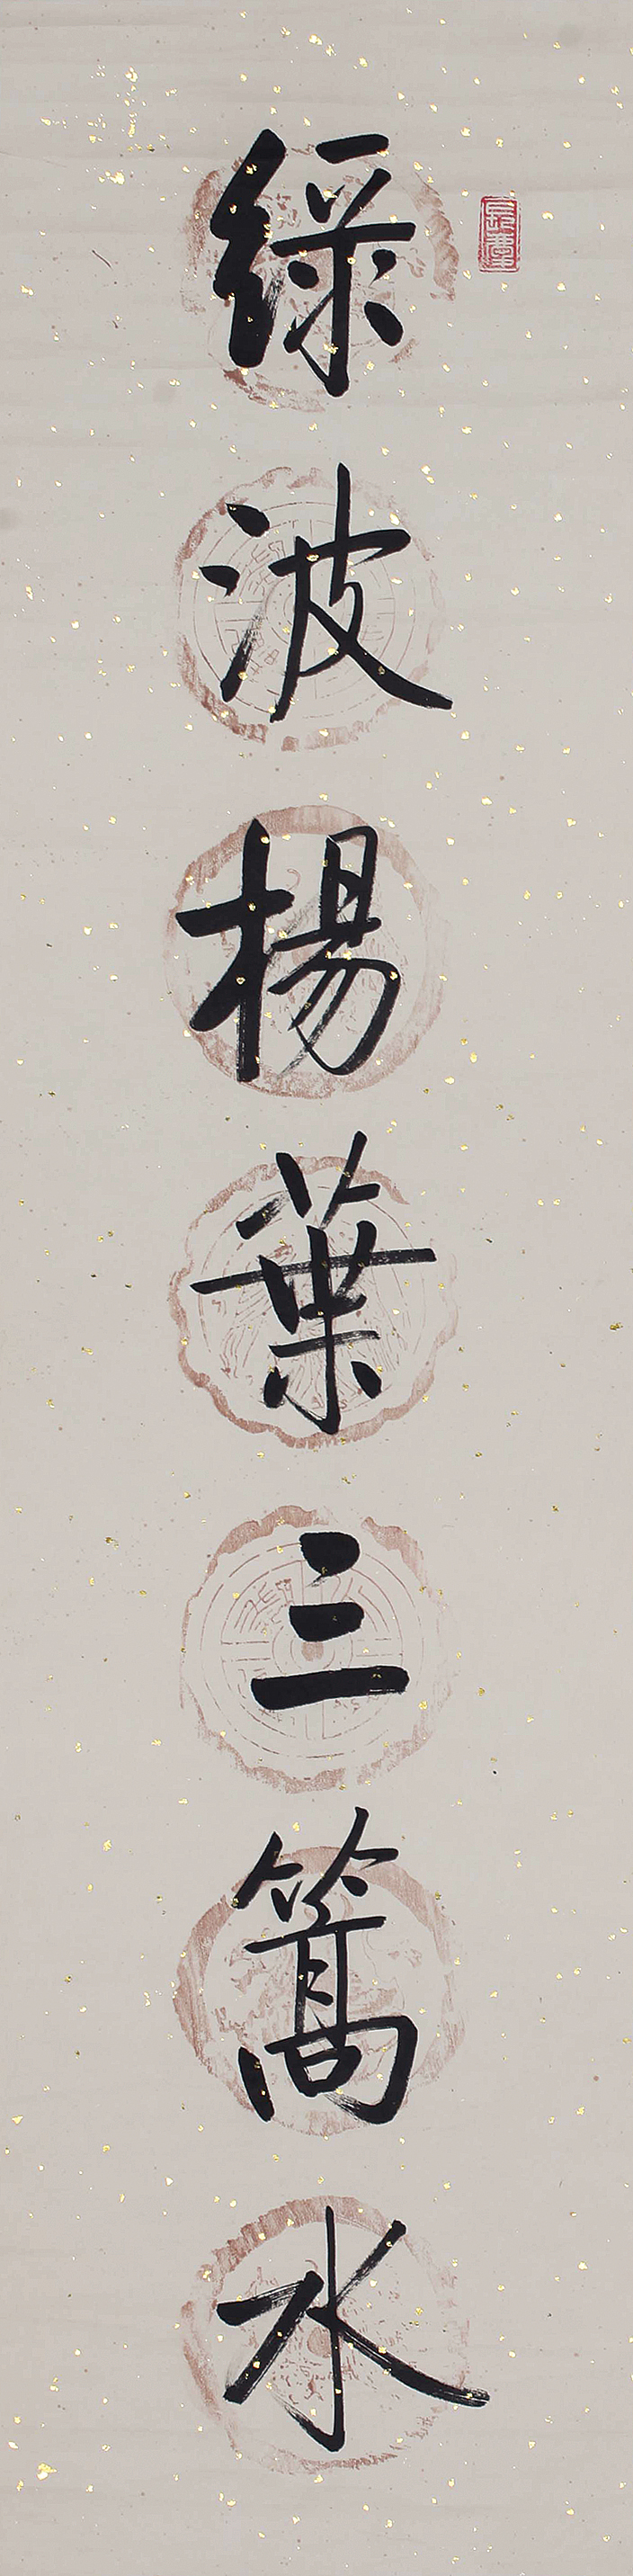 綠波楊葉三篙水